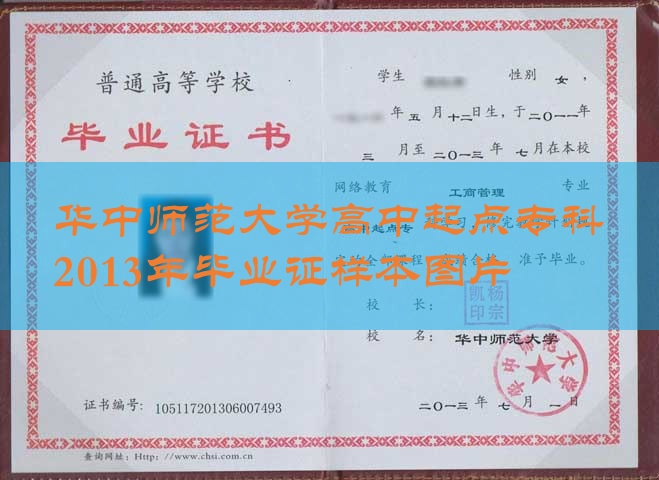 普通高等学校
毕业证书
证书编号: 105117201306007493
查询网址: Http: //www.chsi.com.cn
学生 性别 女,
年五月十二日生,于二〇一一年
三月至二〇一三年七月在本校
网络教育 工商管理 专业
中起点专
全部课程 合格 准予毕业。
校长: 杨宗凯印
校名: 华中师范大学
华中师范大学
二〇一三年七月一日
华中师范大学高中起点专科
2013年毕业证样本图片